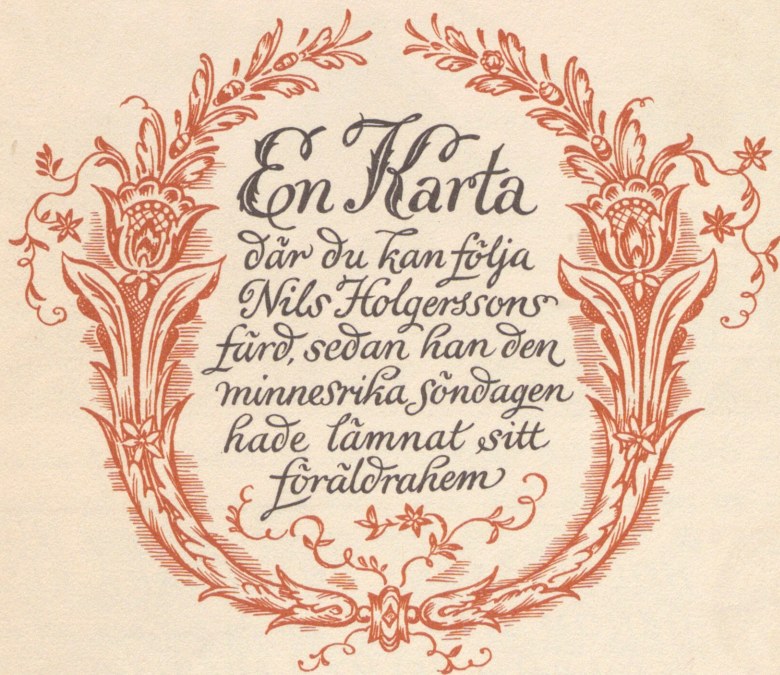 En Karta
där du kan följa
Nils Holgerssons
färd, sedan han den
minnesrika söndagen
hade lämnat sitt
föräldrahem